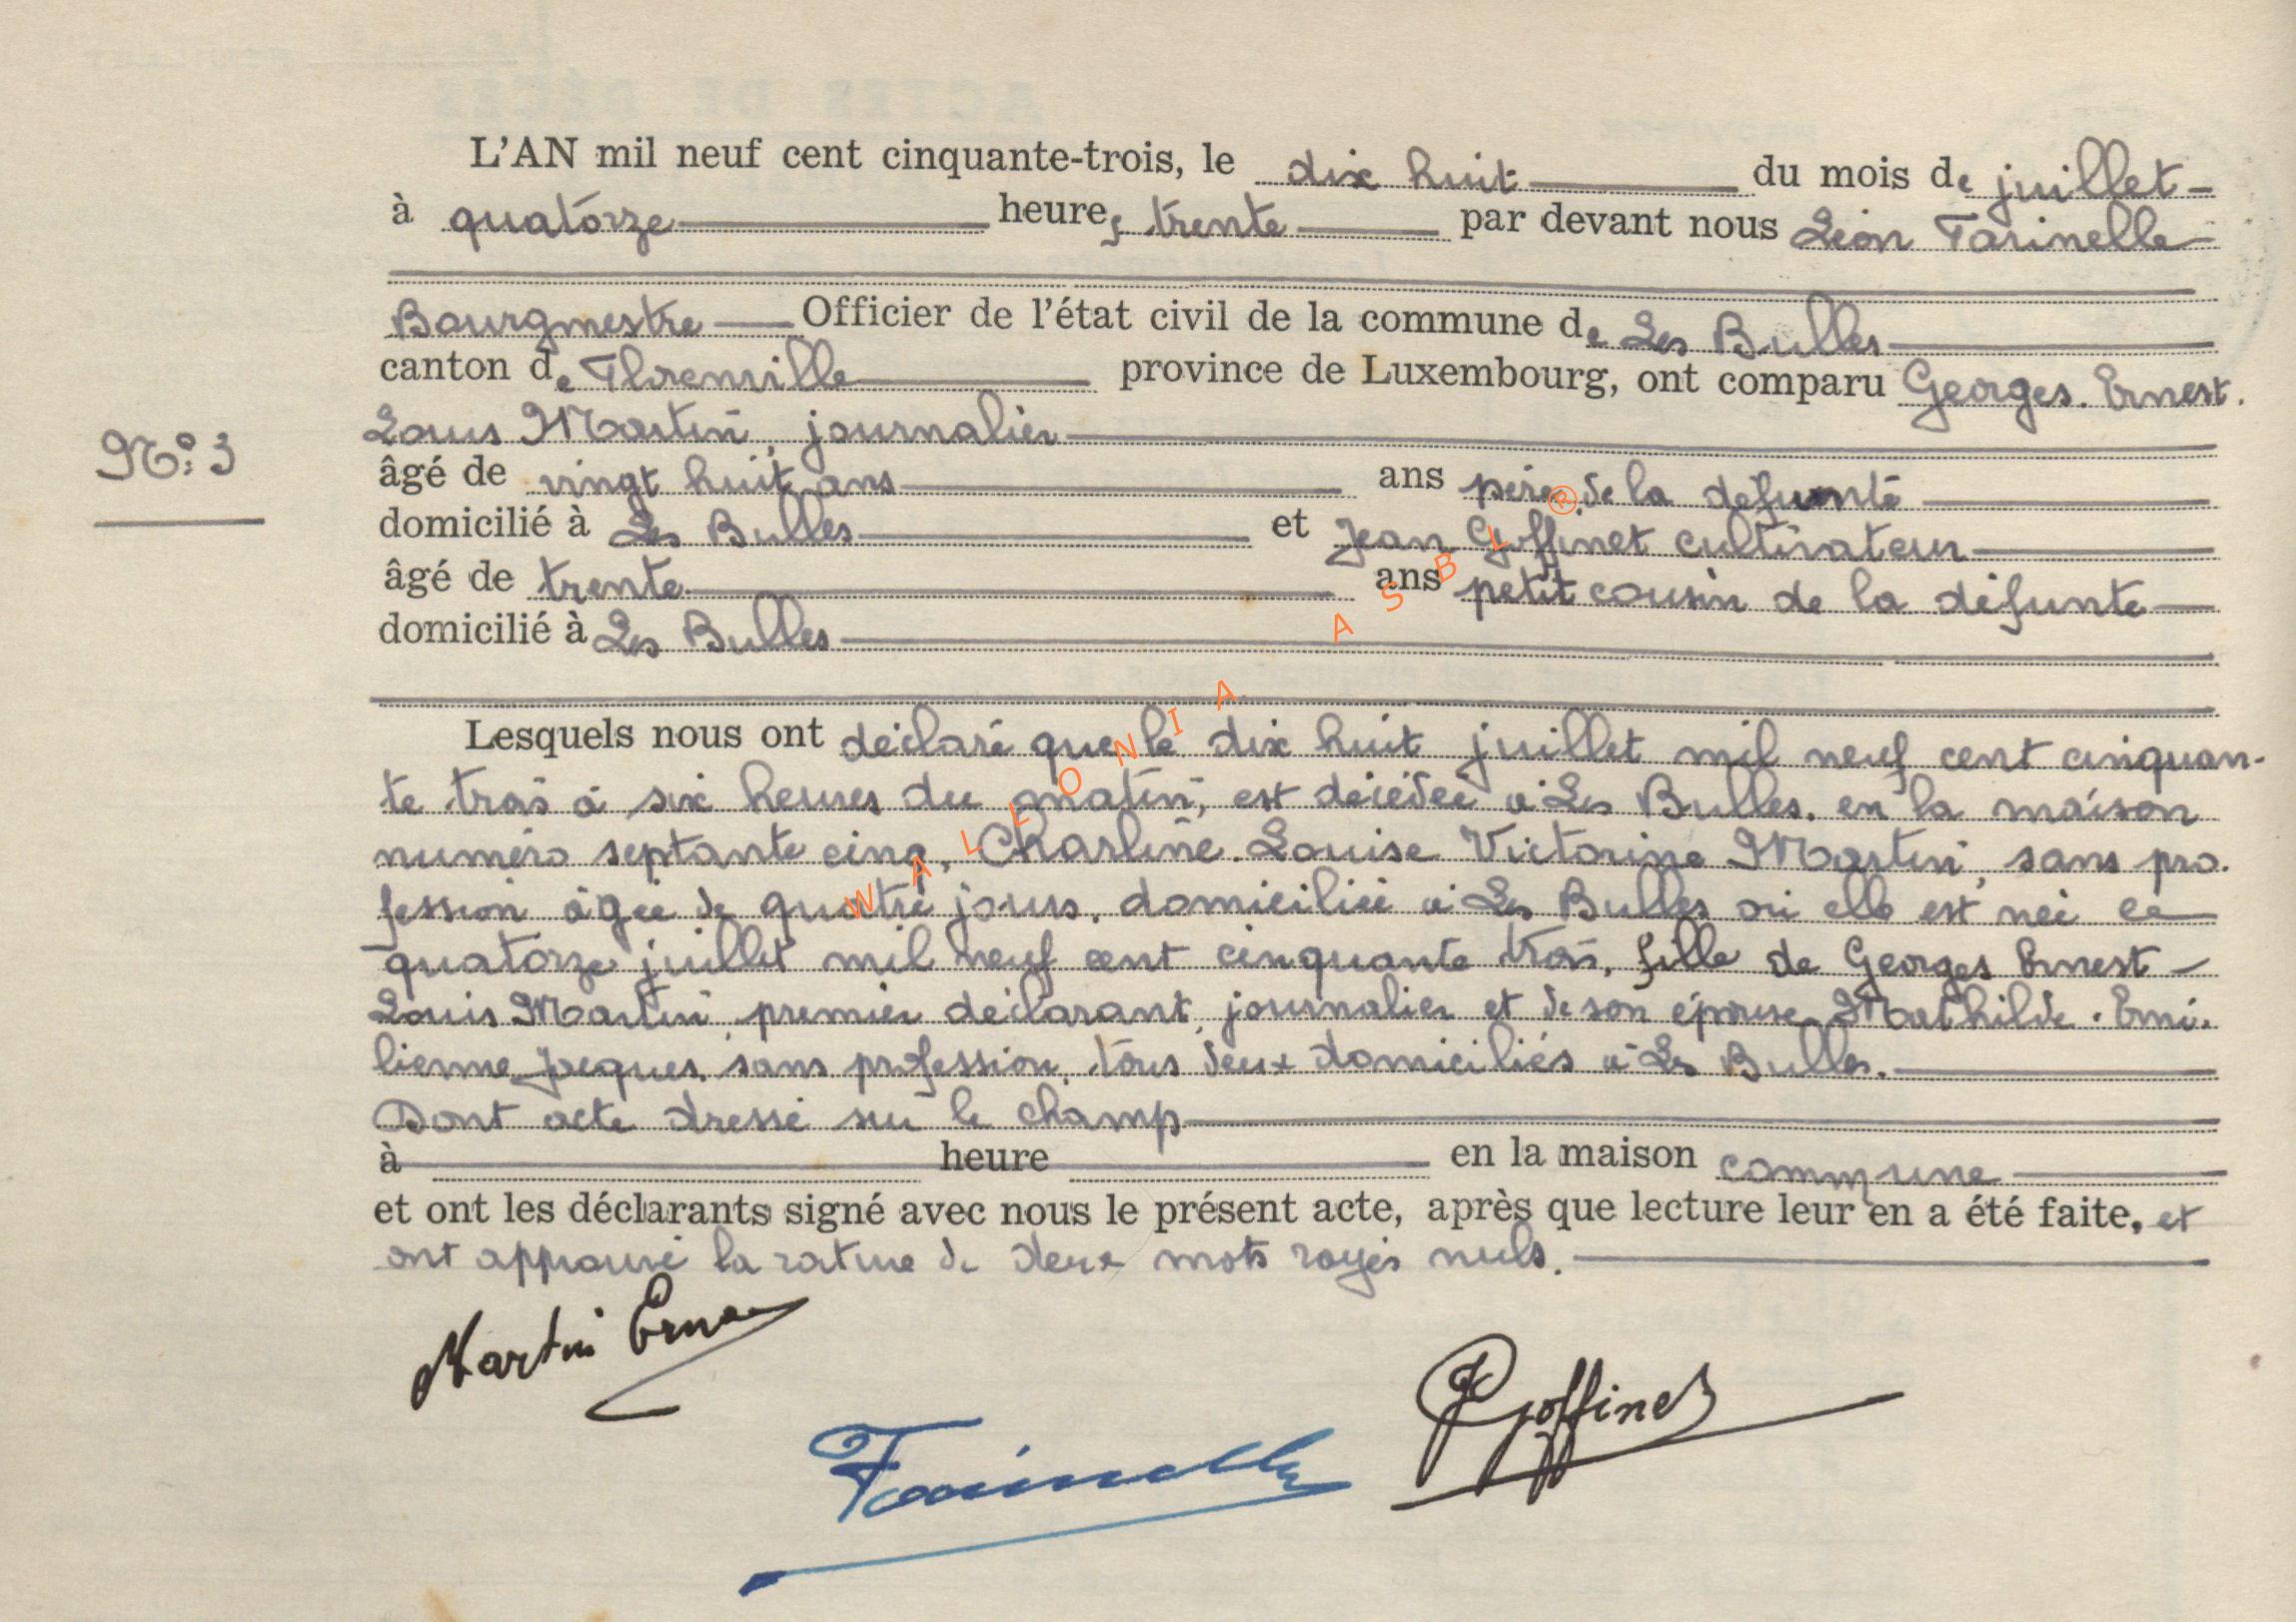 L'AN mil neuf cent cinquante-trois, le dix huit du mois de juillet
à quatorze heures trente par devant nous Léon Farinelle
Bourgmestre Officier de l'état civil de la commune de Les Bulles
canton de Florenville province de Luxembourg, ont comparu Georges. Ernest.
Louis Martin, journalier
N° 3
âgé de vingt huit ans ans père de la défunte
domicilié à Les Bulles et Jean Goffinet cultivateur
âgé de trente ans petit cousin de la défunte
domicilié à Les Bulles
Lesquels nous ont déclaré que le dix huit juillet mil neuf cent cinquan-
te trois à six heures du matin, est décédée à Les Bulles. en la maison
numéro septante cinq, Charline. Louise Victorine Martin, sans pro.
fession âgée de quatre jours. domiciliée à Les Bulles où elle est née le
quatorze juillet mil neuf cent cinquante trois, fille de Georges Ernest
Louis Martin premier déclarant, journalier et de son épouse Mathilde. Emi.
lienne Jacques, sans profession, tous deux domiciliés à Les Bulles.
Dont acte dressé sur le champ
à heure en la maison commune
et ont les déclarants signé avec nous le présent acte, après que lecture leur en a été faite, et
ont approuvé la rature de deux mots rayés nuls.
Martin Ernest
JGoffinet
Farinelle
WALLONIA ASBL ®